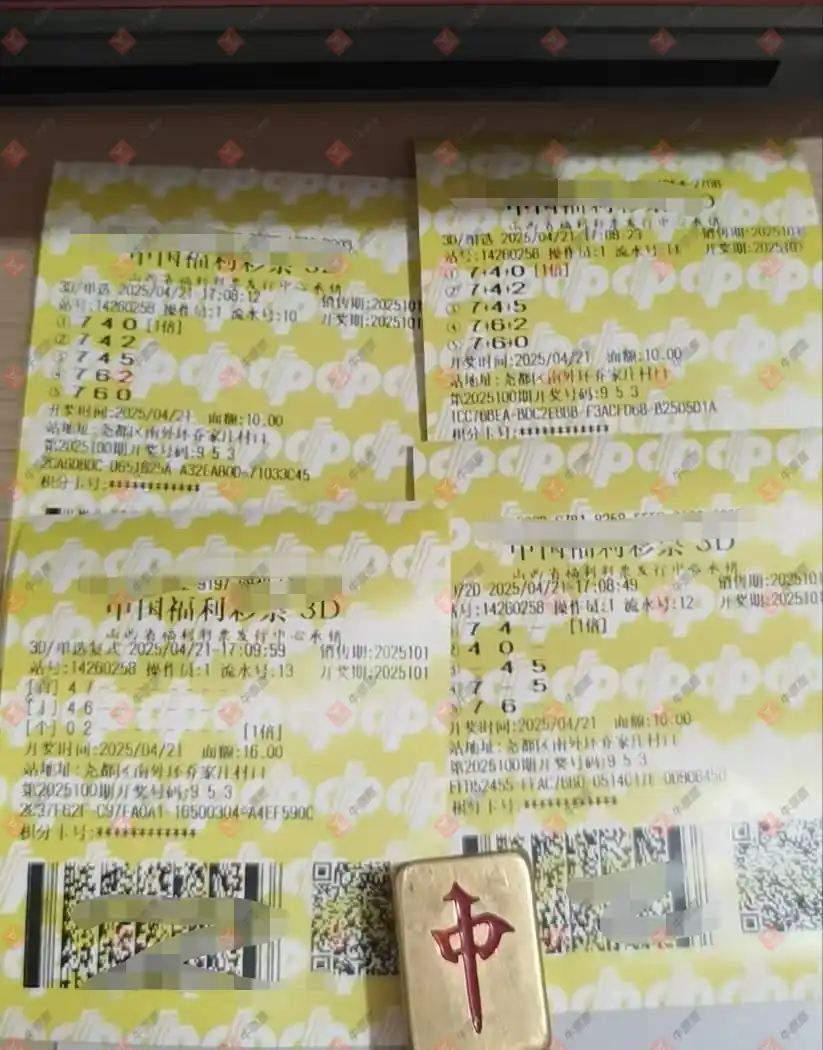 中国福利彩票 3D
山西省福利彩票发行中心承销
3D/单选 2025/04/21 17:08:12 销售期:2025101
站号:14260258 操作员:1 流水号:10 开奖期:2025101
① 7 4 0 [1倍]
② 7 4 2
③ 7 4 5
④ 7 6 2
⑤ 7 6 0
开奖时间:2025/04/21 面额:10.00
站地址:尧都区南外环乔家庄村口
第2025100期开奖号码:9 5 3
积分卡号:************
中国福利彩票 3D
山西省福利彩票发行中心承销
3D/组选 2025/04/21 17:08:23 销售期:2025101
站号:14260258 操作员:1 流水号:11 开奖期:2025101
① 7+4+0 [1倍]
② 7+4+2
③ 7+4+5
④ 7+6+2
⑤ 7+6+0
开奖时间:2025/04/21 面额:10.00
站地址:尧都区南外环乔家庄村口
第2025100期开奖号码:9 5 3
积分卡号:************
9197
中国福利彩票 3D
山西省福利彩票发行中心承销
3D/单选复式 2025/04/21 17:09:59 销售期:2025101
站号:14260258 操作员:1 流水号:13 开奖期:2025101
[百] 4 7
[十] 4 6
[个] 0 2 [1倍]
开奖时间:2025/04/21 面额:16.00
站地址:尧都区南外环乔家庄村口
第2025100期开奖号码:9 5 3
积分卡号:************
中国福利彩票 3D
山西省福利彩票发行中心承销
/2D 2025/04/21 17:08:49 销售期:2025101
站号:14260258 操作员:1 流水号:12 开奖期:2025101
7 4 – [1倍]
4 0 –
– 4 5
7 – 5
7 6
开奖时间:2025/04/21 面额:10.00
站地址:尧都区南外环乔家庄村口
第2025100期开奖号码:9 5 3
积分卡号:************
中